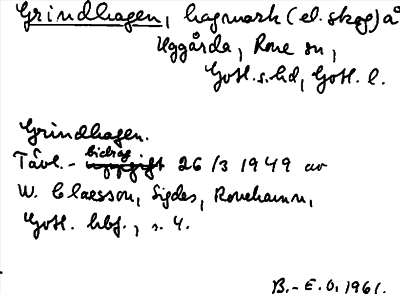 Grindhagen, hagmark (el. skog) å
Uggårda, Rone sn,
Gotl. s. hd, Gotl. l.
Grindhagen.
Tävl.- bidrag 26/3 1949 av
W. Claesson, Sigdes, Ronehamn,
Gotl. hbf., s. 4.
B.-E. O. 1961.